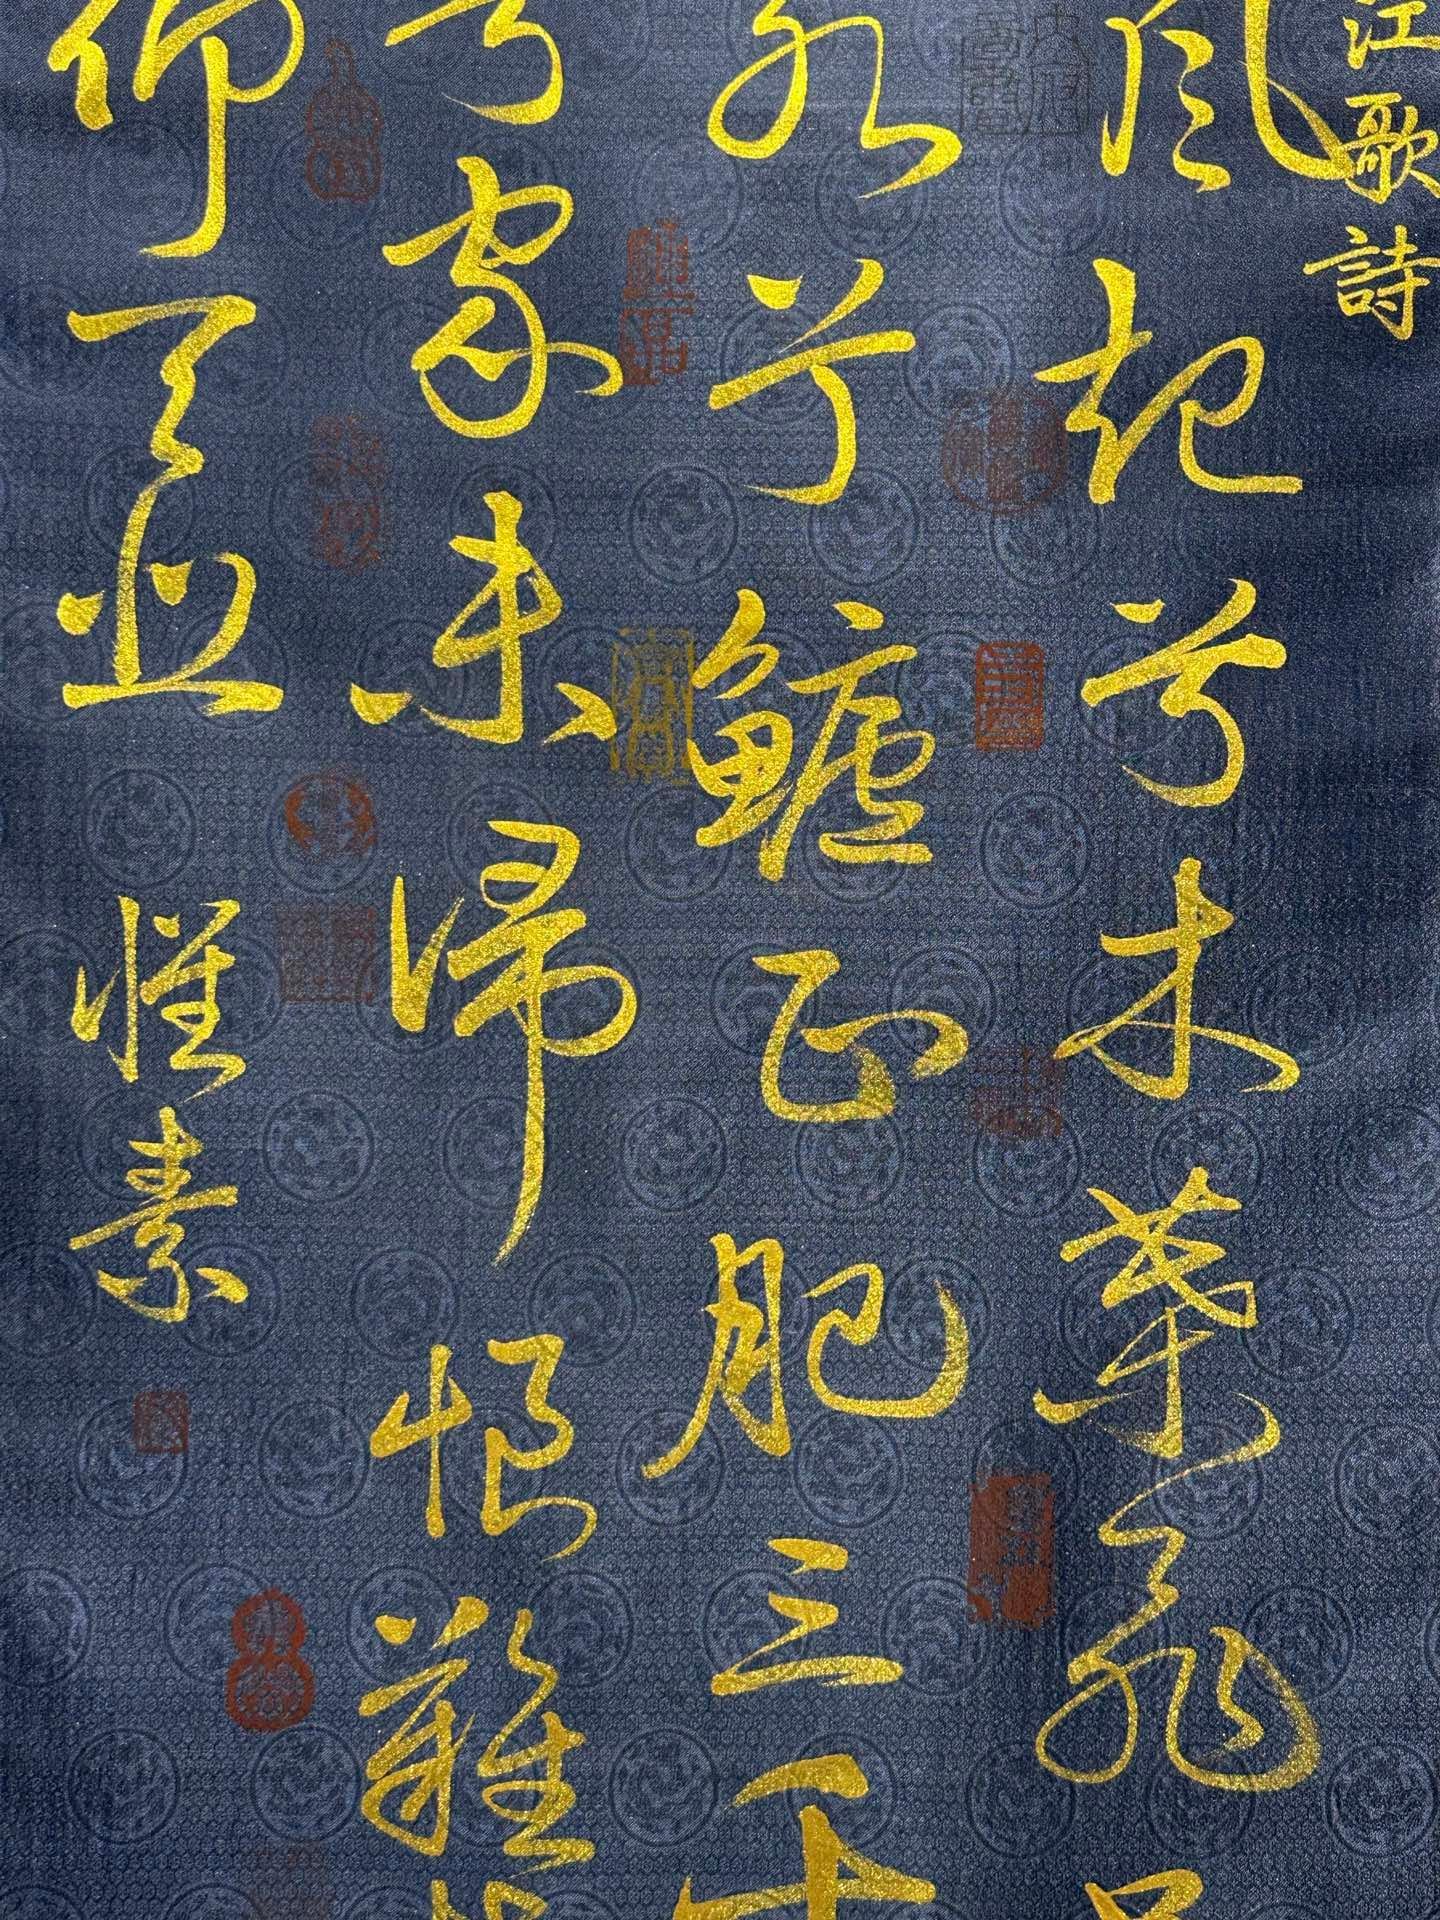 江歌詩
風起兮木葉飛
水兮鱸正肥三千
兮家未歸恨難
仰天悲 懷素